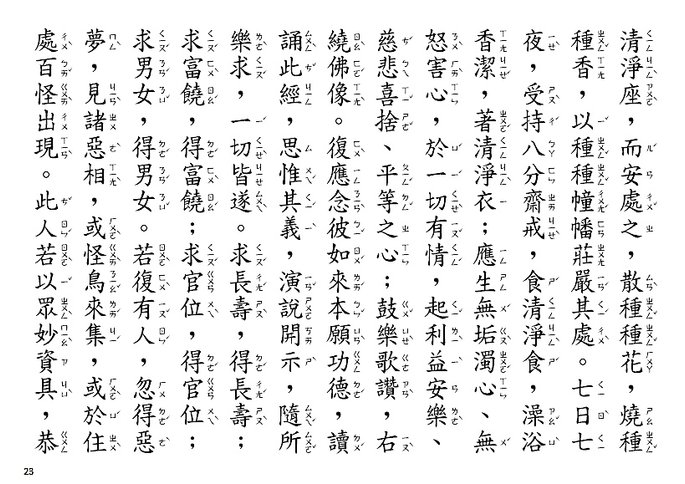 清淨座，而安處之，散種種花，燒種
種香，以種種幢幡莊嚴其處。七日七
夜，受持八分齋戒，食清淨食，澡浴
香潔，著清淨衣；應生無垢濁心、無
怒害心，於一切有情，起利益安樂、
慈悲喜捨、平等之心；鼓樂歌讚，右
繞佛像。復應念彼如來本願功德，讀
誦此經，思惟其義，演說開示，隨所
樂求，一切皆遂。求長壽，得長壽；
求富饒，得富饒；求官位，得官位；
求男女，得男女。若復有人，忽得惡
夢，見諸惡相，或怪鳥來集，或於住
處百怪出現。此人若以眾妙資具，恭
23